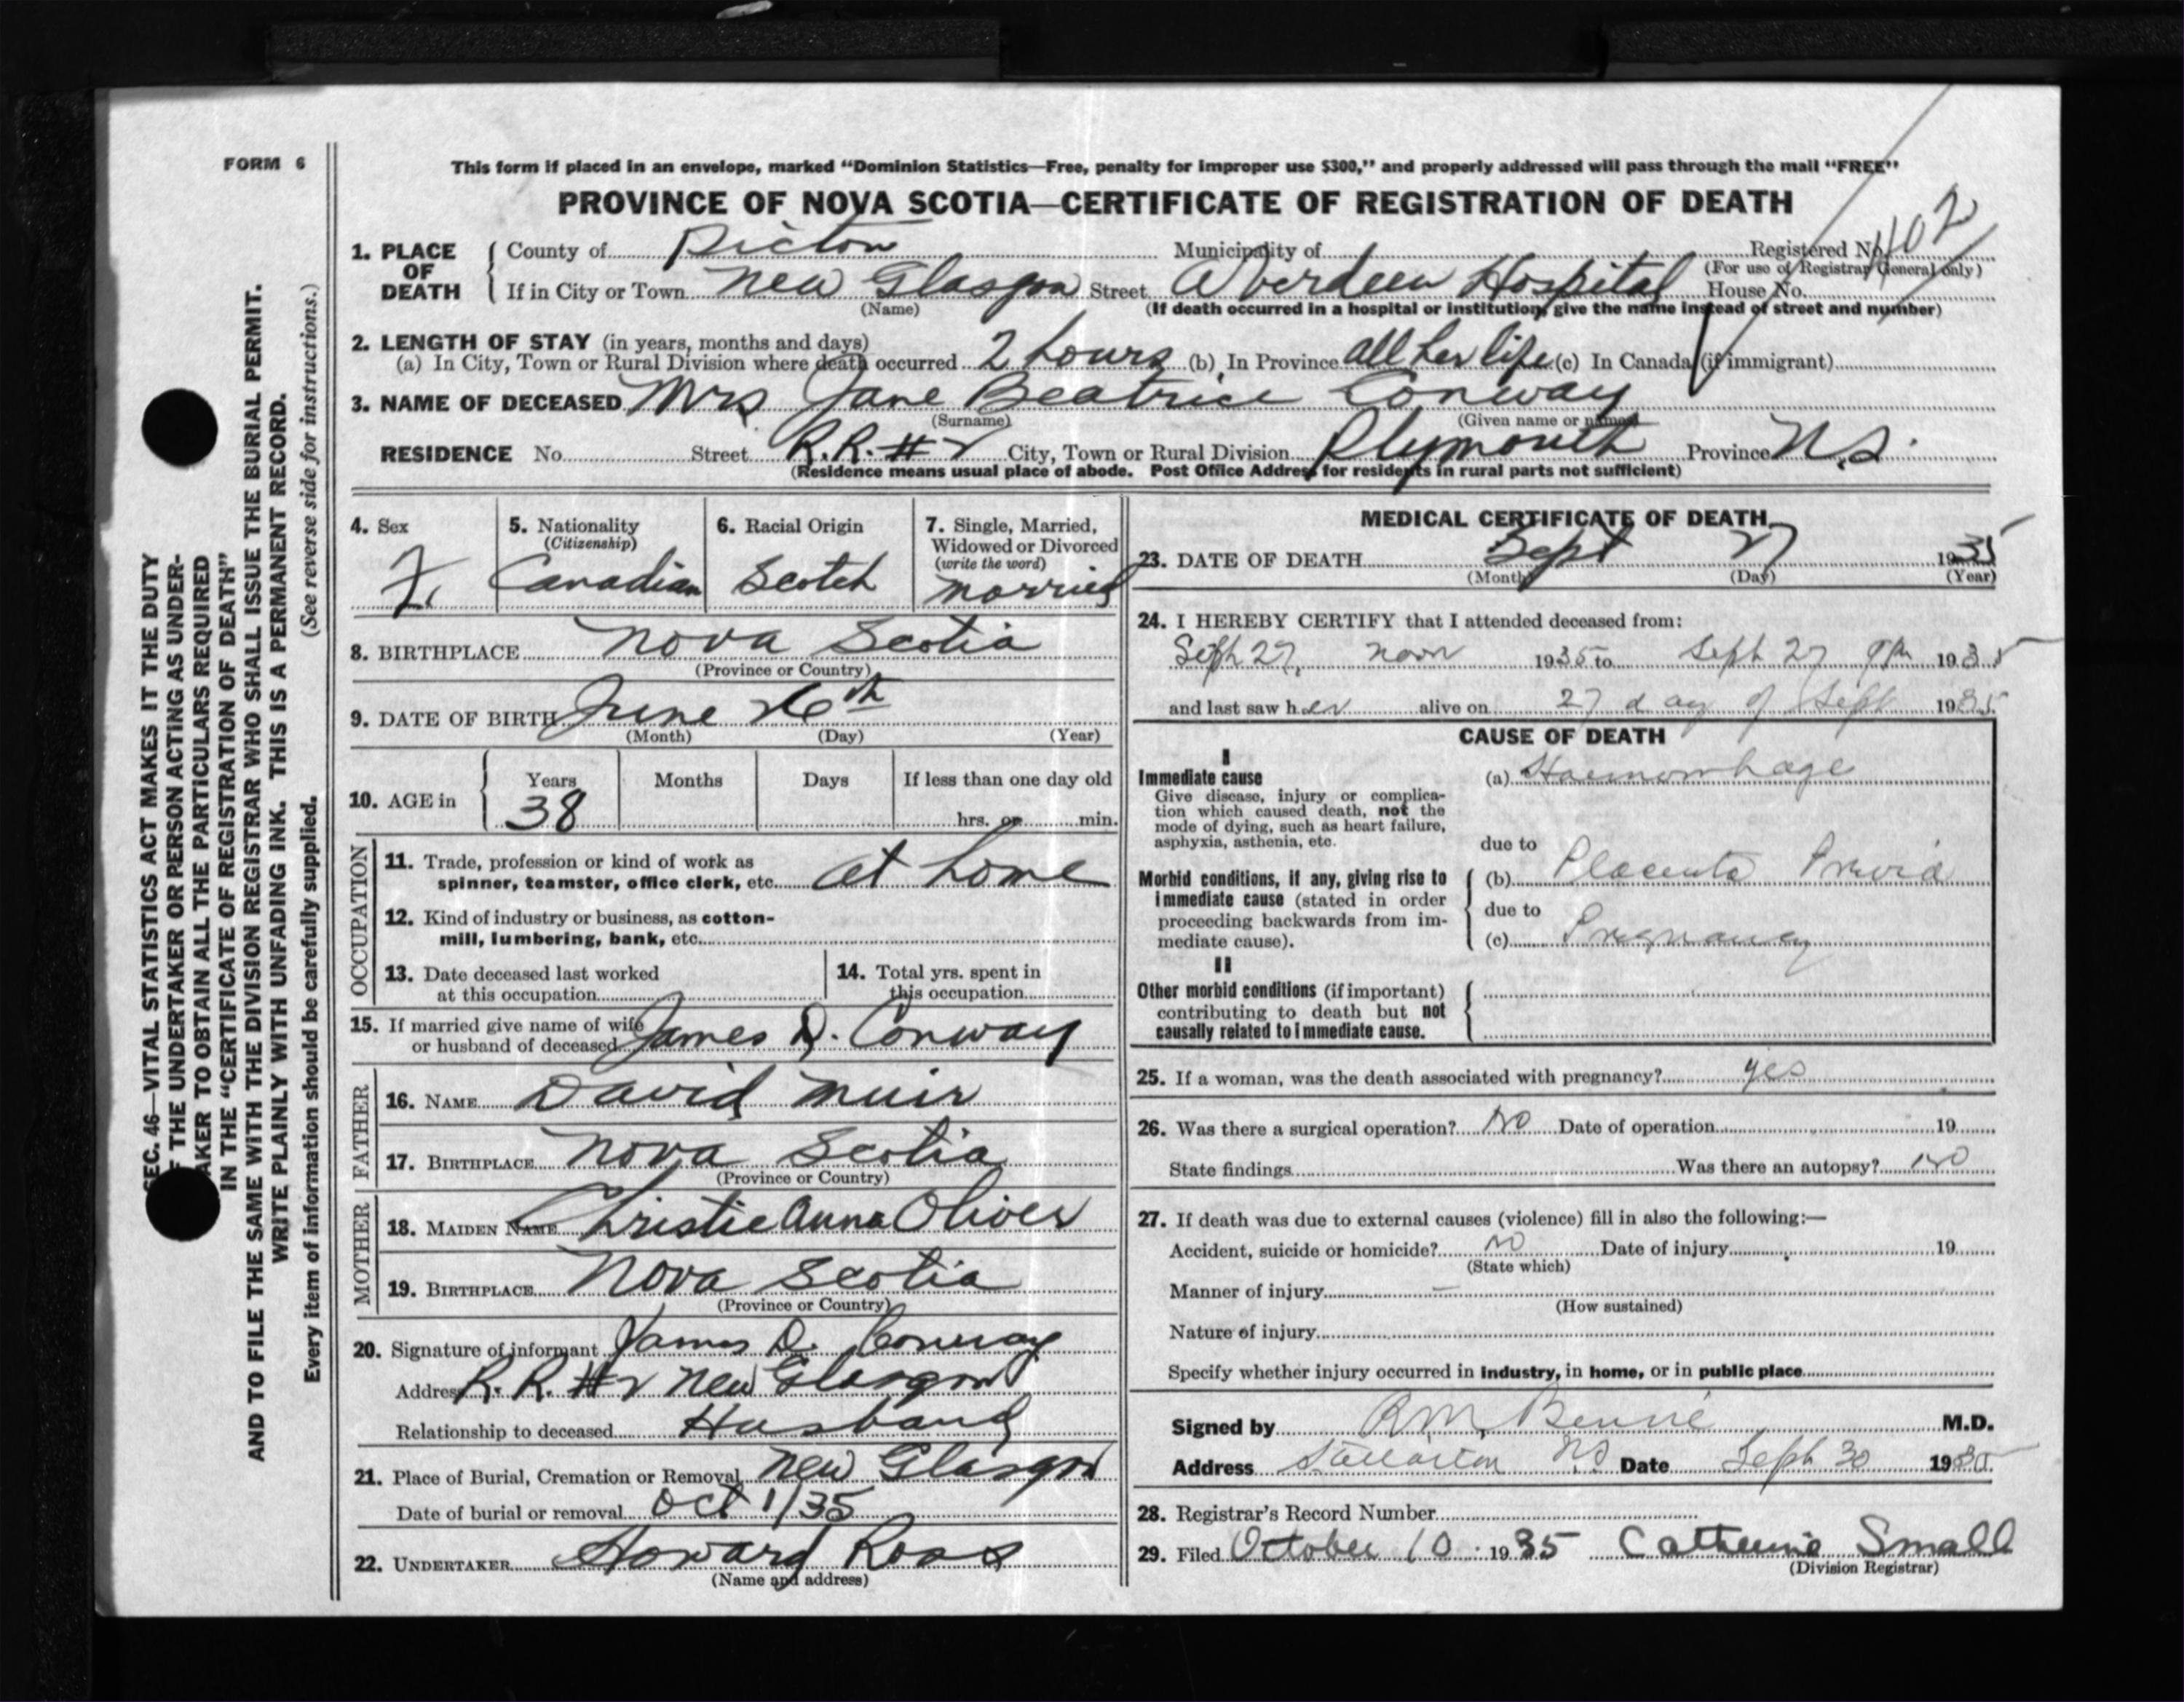 FORM 6
This form if placed in an envelope, marked “Dominion Statistics—Free, penalty for improper use $300,” and properly addressed will pass through the mail “FREE”
PROVINCE OF NOVA SCOTIA—CERTIFICATE OF REGISTRATION OF DEATH
1. PLACE OF DEATH County of Pictou Municipality of Registered No. 1102
(For use of Registrar General only)
If in City or Town New Glasgow Street Aberdeen Hospital House No.
(Name) (If death occurred in a hospital or institution, give the name instead of street and number)
2. LENGTH OF STAY (in years, months and days)
(a) In City, Town or Rural Division where death occurred 2 hours (b) In Province all her life (c) In Canada (if immigrant)
3. NAME OF DECEASED Mrs Jane Beatrice Conway
(Surname) (Given name or names)
RESIDENCE No. Street R.R. # 2 City, Town or Rural Division Plymouth Province N.S.
(Residence means usual place of abode. Post Office Address for residents in rural parts not sufficient)
4. Sex F.
5. Nationality (Citizenship) Canadian
6. Racial Origin Scotch
7. Single, Married, Widowed or Divorced (write the word) Married
8. BIRTHPLACE Nova Scotia
(Province or Country)
9. DATE OF BIRTH June 26th
(Month) (Day) (Year)
10. AGE in Years 38 Months Days If less than one day old
hrs. or min.
OCCUPATION
11. Trade, profession or kind of work as
spinner, teamster, office clerk, etc. at home
12. Kind of industry or business, as cotton-
mill, lumbering, bank, etc.
13. Date deceased last worked
at this occupation
14. Total yrs. spent in
this occupation
15. If married give name of wife
or husband of deceased James D. Conway
FATHER
16. NAME David Muir
17. BIRTHPLACE Nova Scotia
(Province or Country)
MOTHER
18. MAIDEN NAME Christie Anna Oliver
19. BIRTHPLACE Nova Scotia
(Province or Country)
20. Signature of informant James D. Conway
Address R. R. #2 New Glasgow
Relationship to deceased Husband
21. Place of Burial, Cremation or Removal New Glasgow
Date of burial or removal Oct 1/35
22. UNDERTAKER Howard Ross
(Name and address)
MEDICAL CERTIFICATE OF DEATH
23. DATE OF DEATH Sept 27 1935
(Month) (Day) (Year)
24. I HEREBY CERTIFY that I attended deceased from:
Sept 27, noon 1935 to Sept 27 9 PM 1935
and last saw her alive on 27 day of Sept 1935
CAUSE OF DEATH
I
Immediate cause (a) Haemorrhage
Give disease, injury or complica-
tion which caused death, not the
mode of dying, such as heart failure,
asphyxia, asthenia, etc.
due to
Morbid conditions, if any, giving rise to
immediate cause (stated in order
proceeding backwards from im-
mediate cause).
(b) Placenta Previa
due to
(c) Pregnancy
II
Other morbid conditions (if important)
contributing to death but not
causally related to immediate cause.
25. If a woman, was the death associated with pregnancy? yes
26. Was there a surgical operation? No Date of operation 19
State findings Was there an autopsy? no
27. If death was due to external causes (violence) fill in also the following:—
Accident, suicide or homicide? no Date of injury 19
(State which)
Manner of injury —
(How sustained)
Nature of injury
Specify whether injury occurred in industry, in home, or in public place
Signed by R M Benvie M.D.
Address Stellarton NS Date Sept 30 1935
28. Registrar's Record Number
29. Filed October 10 1935 Catherine Small
(Division Registrar)
SEC. 46—VITAL STATISTICS ACT MAKES IT THE DUTY
THE UNDERTAKER OR PERSON ACTING AS UNDER-
TAKER TO OBTAIN ALL THE PARTICULARS REQUIRED
IN THE “CERTIFICATE OF REGISTRATION OF DEATH”
AND TO FILE THE SAME WITH THE DIVISION REGISTRAR WHO SHALL ISSUE THE BURIAL PERMIT.
WRITE PLAINLY WITH UNFADING INK. THIS IS A PERMANENT RECORD.
Every item of information should be carefully supplied. (See reverse side for instructions.)